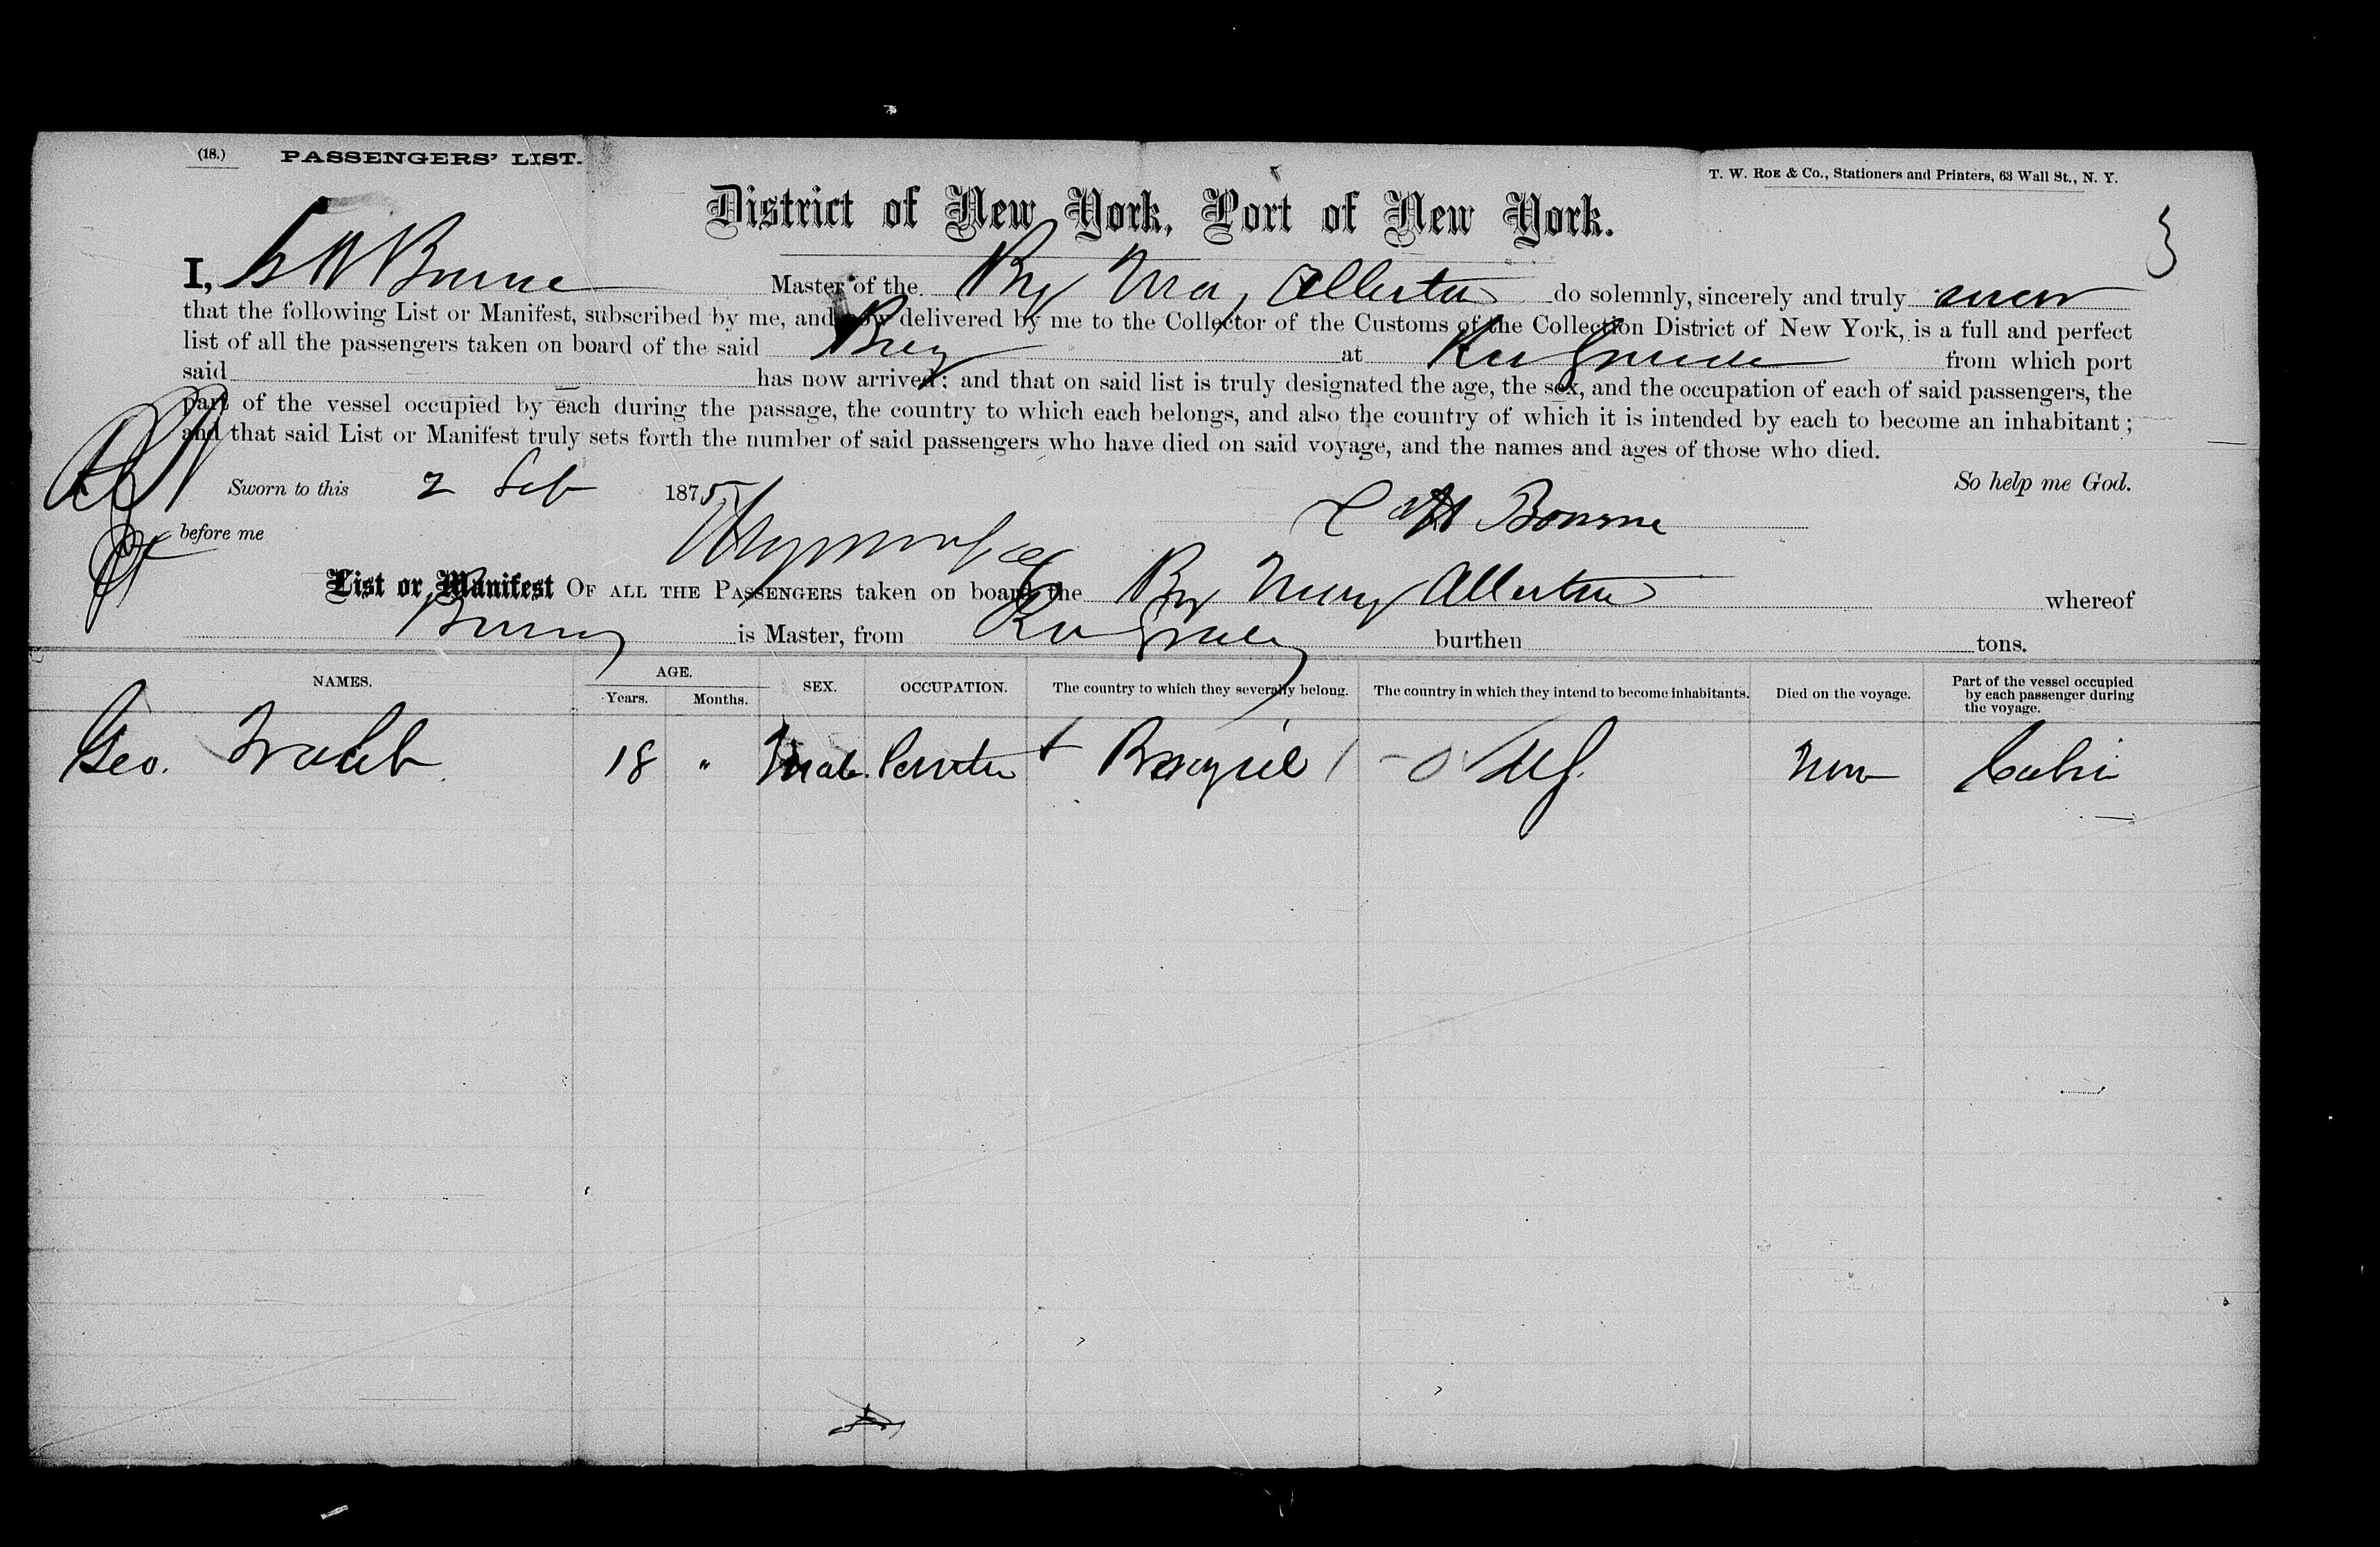 (18.) PASSENGERS' LIST.
T. W. ROE & Co., Stationers and Printers, 63 Wall St., N. Y.
District of New York, Port of New York.
I, Bourne Master of the Brig Mary Allerton do solemnly, sincerely and truly swear
that the following List or Manifest, subscribed by me, and now delivered by me to the Collector of the Customs of the Collection District of New York, is a full and perfect
list of all the passengers taken on board of the said Brig at Rio Grande from which port
said has now arrived: and that on said list is truly designated the age, the sex, and the occupation of each of said passengers, the
part of the vessel occupied by each during the passage, the country to which each belongs, and also the country of which it is intended by each to become an inhabitant;
and that said List or Manifest truly sets forth the number of said passengers who have died on said voyage, and the names and ages of those who died.
Sworn to this 2 Feb 1875 So help me God.
before me Bourne
List or Manifest OF ALL THE PASSENGERS taken on board the Brig Mary Allerton whereof
Bourne is Master, from Rio Grande burthen tons.
NAMES. AGE. Years. Months. SEX. OCCUPATION. The country to which they severally belong. The country in which they intend to become inhabitants. Died on the voyage. Part of the vessel occupied by each passenger during the voyage.
Geo. 18 " Male. Brazil US. None Cabin